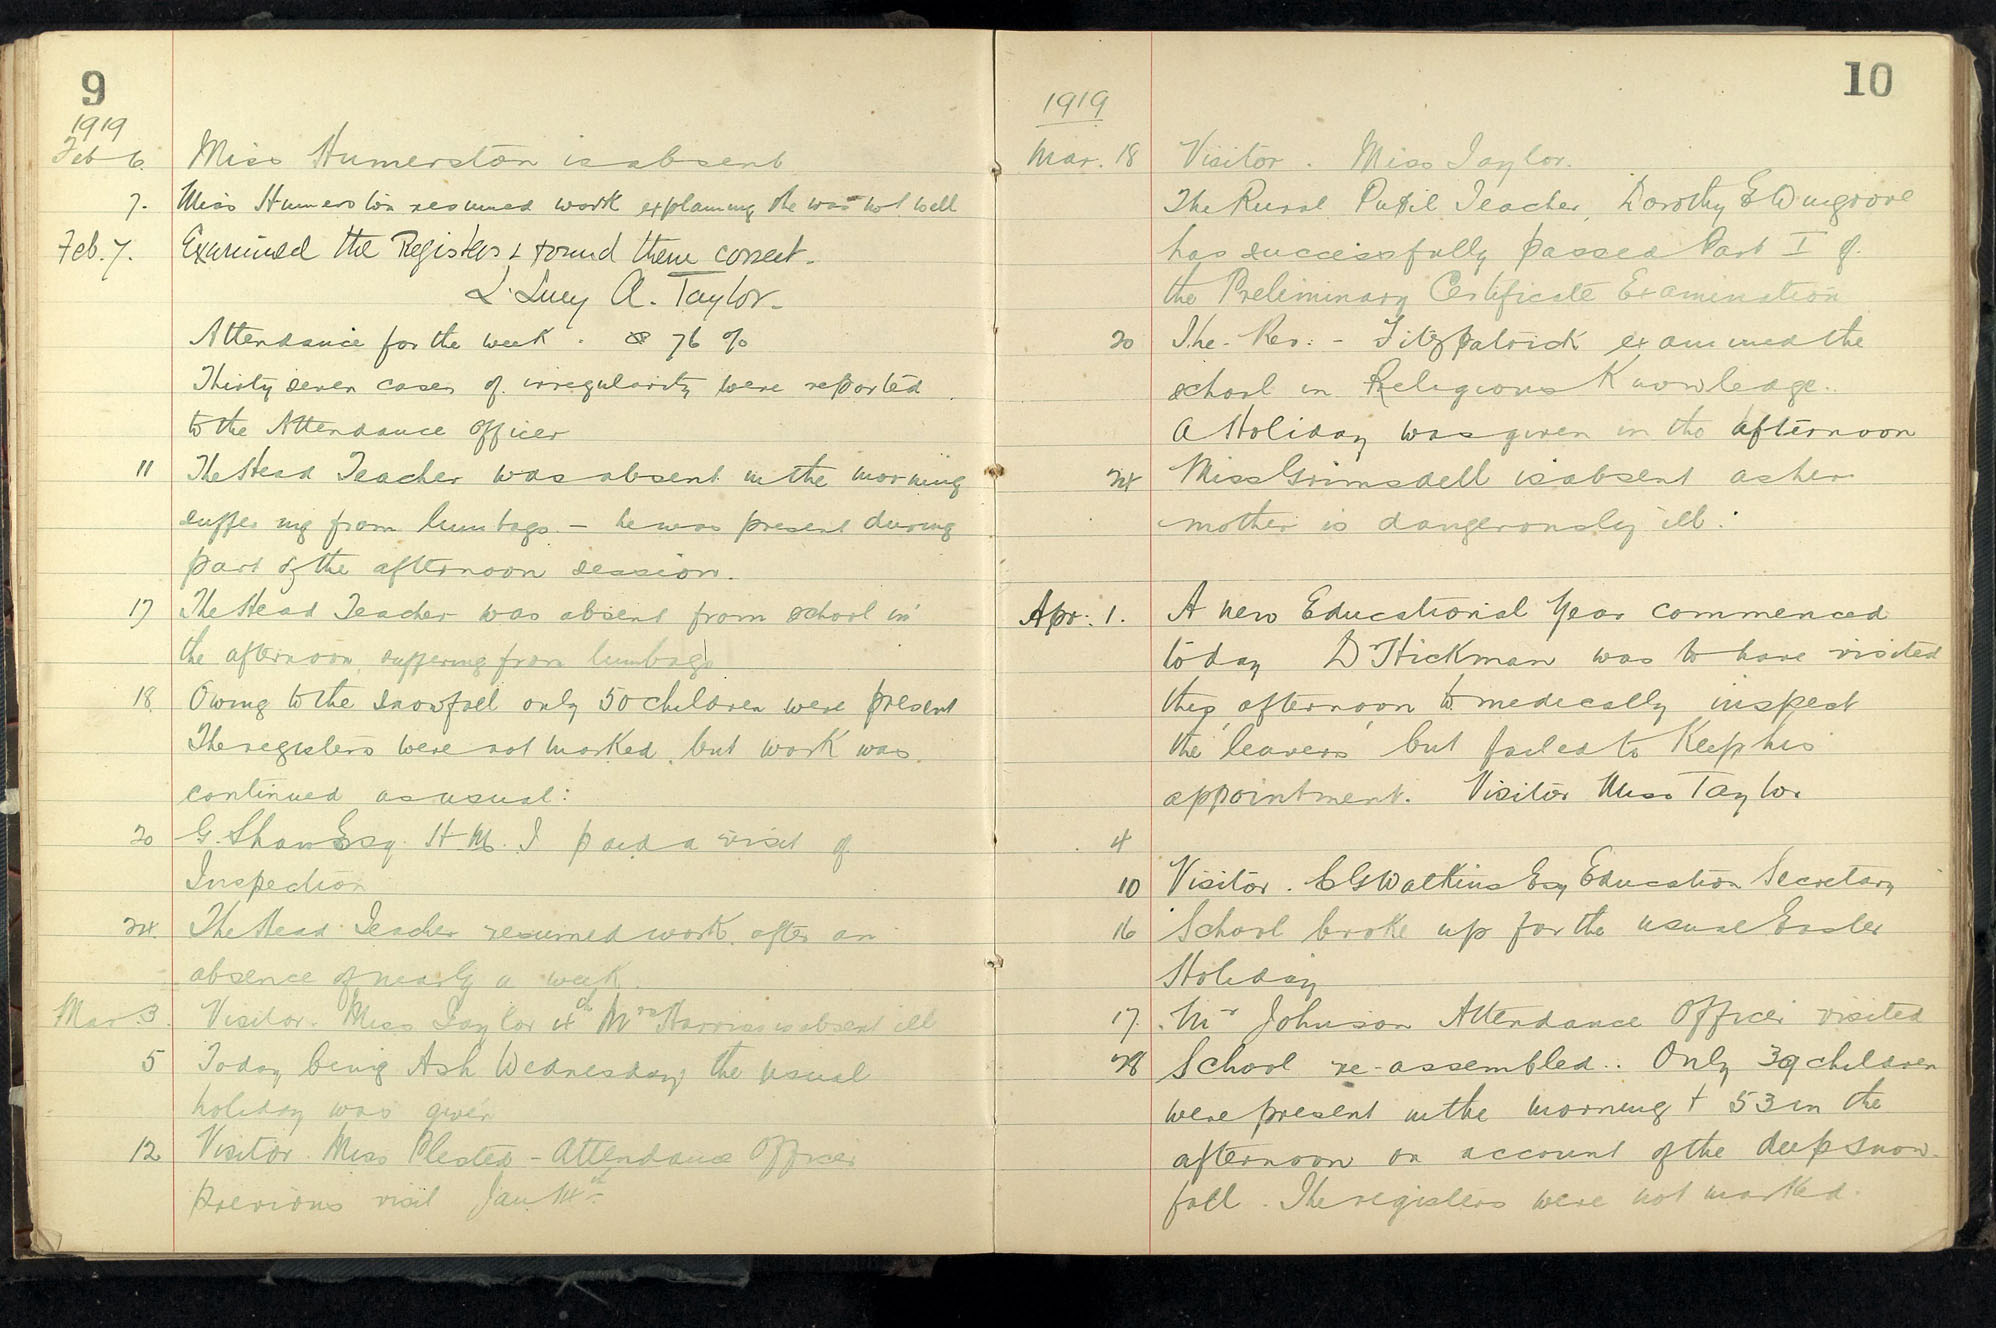 9
1919
Feb 6. Miss Humerston is absent
7. Miss Humerston resumed work explaining she was not well
Feb. 7. Examined the Registers & found them correct.
L. Lucy A. Taylor.
Attendance for the week . 76 %
Thirty seven cases of irregularity were reported
to the Attendance Officer
11 The Head Teacher was absent in the morning
suffering from lumbago – he was present during
part of the afternoon session.
17 The Head Teacher was absent from school in
the afternoon, suffering from lumbago
18. Owing to the snowfall only 50 children were present
The registers were not marked, but work was
continued as usual:
20 G. Shaw Esq. H.M.I paid a visit of
Inspection
24. The Head Teacher resumed work after an
absence of nearly a week.
Mar. 3. Visitor. Miss Taylor 4th Mrs Harris is absent ill
5 Today being Ash Wednesday the usual
holiday was given
12 Visitor. Miss Plested – Attendance Officer
previous visit Jan 14th
10
1919
Mar. 18 Visitor. Miss Taylor.
The Rural Pupil Teacher, Dorothy E Wingrove
has successfully passed Part I of
the Preliminary Certificate Examination
20 The Rev: – Fitzpatrick examined the
school in Religious Knowledge.
A Holiday was given in the afternoon
24 Miss Grimsdell is absent as her
mother is dangerously ill:
Apr. 1. A new Educational Year commenced
today Dr Hickman was to have visited
this afternoon to medically inspect
the 'leavers' but failed to keep his
appointment. Visitor Miss Taylor
4
10 Visitor. C G Watkins Esq Education Secretary
16 School broke up for the usual Easter
Holiday
17. Mr Johnson Attendance Officer visited
28 School re-assembled.. Only 39 children
were present in the morning + 53 in the
afternoon on account of the deep snow-
fall. The registers were not marked.